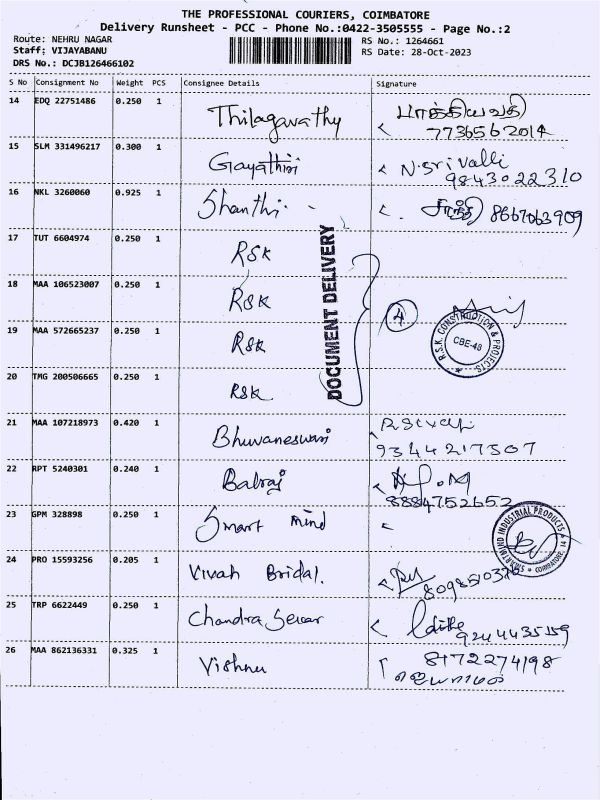 THE PROFESSIONAL COURIERS, COIMBATORE
Delivery Runsheet - PCC - Phone No.:0422-3505555 - Page No.:2
Route: NEHRU NAGAR
RS No.: 1264661
Staff: VIJAYABANU
RS Date: 28-Oct-2023
DRS No.: DCJB126466102
S No Consignment No Weight PCS Consignee Details Signature
14 EDQ 22751486 0.250 1 Thilagavathy பாக்கியவதி
7736562014
15 SLM 331496217 0.300 1 Gayathiri N.Srivalli
9843022310
16 NKL 3260060 0.925 1 Shanthi. சாந்தி 8667063909
17 TUT 6604974 0.250 1 RSK
DOCUMENT DELIVERY
18 MAA 106523007 0.250 1 RSK
4
R.S.K. CONSTRUCTION & PROJECTS
CBE-43
19 MAA 572665237 0.250 1 RSK
20 TMG 200506665 0.250 1 RSK
21 MAA 107218973 0.420 1 Bhuvaneswari
9344217507
22 RPT 5240301 0.240 1 Balraj
8884752652
23 GPM 328898 0.250 1 Smart mind
SMARTMIND INDUSTRIAL PRODUCTS
COIMBATORE
24 PRO 15593256 0.205 1 Vivah Bridal.
25 TRP 6622449 0.250 1 Chandra Sekar
9244435159
26 MAA 862136331 0.325 1 Vishnu 8172274198
ஜெயராமன்